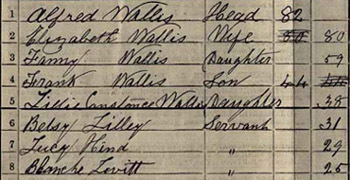 1 Alfred Wallis Head 82
2 Elizabeth Wallis Wife 80
3 Fanny Wallis Daughter 59
4 Frank Wallis Son 44
5 Lillie Constance Wallis Daughter 38
6 Betsy Lilley Servant 31
7 Lucy Hind " 29
8 Blanche Levitt " 25